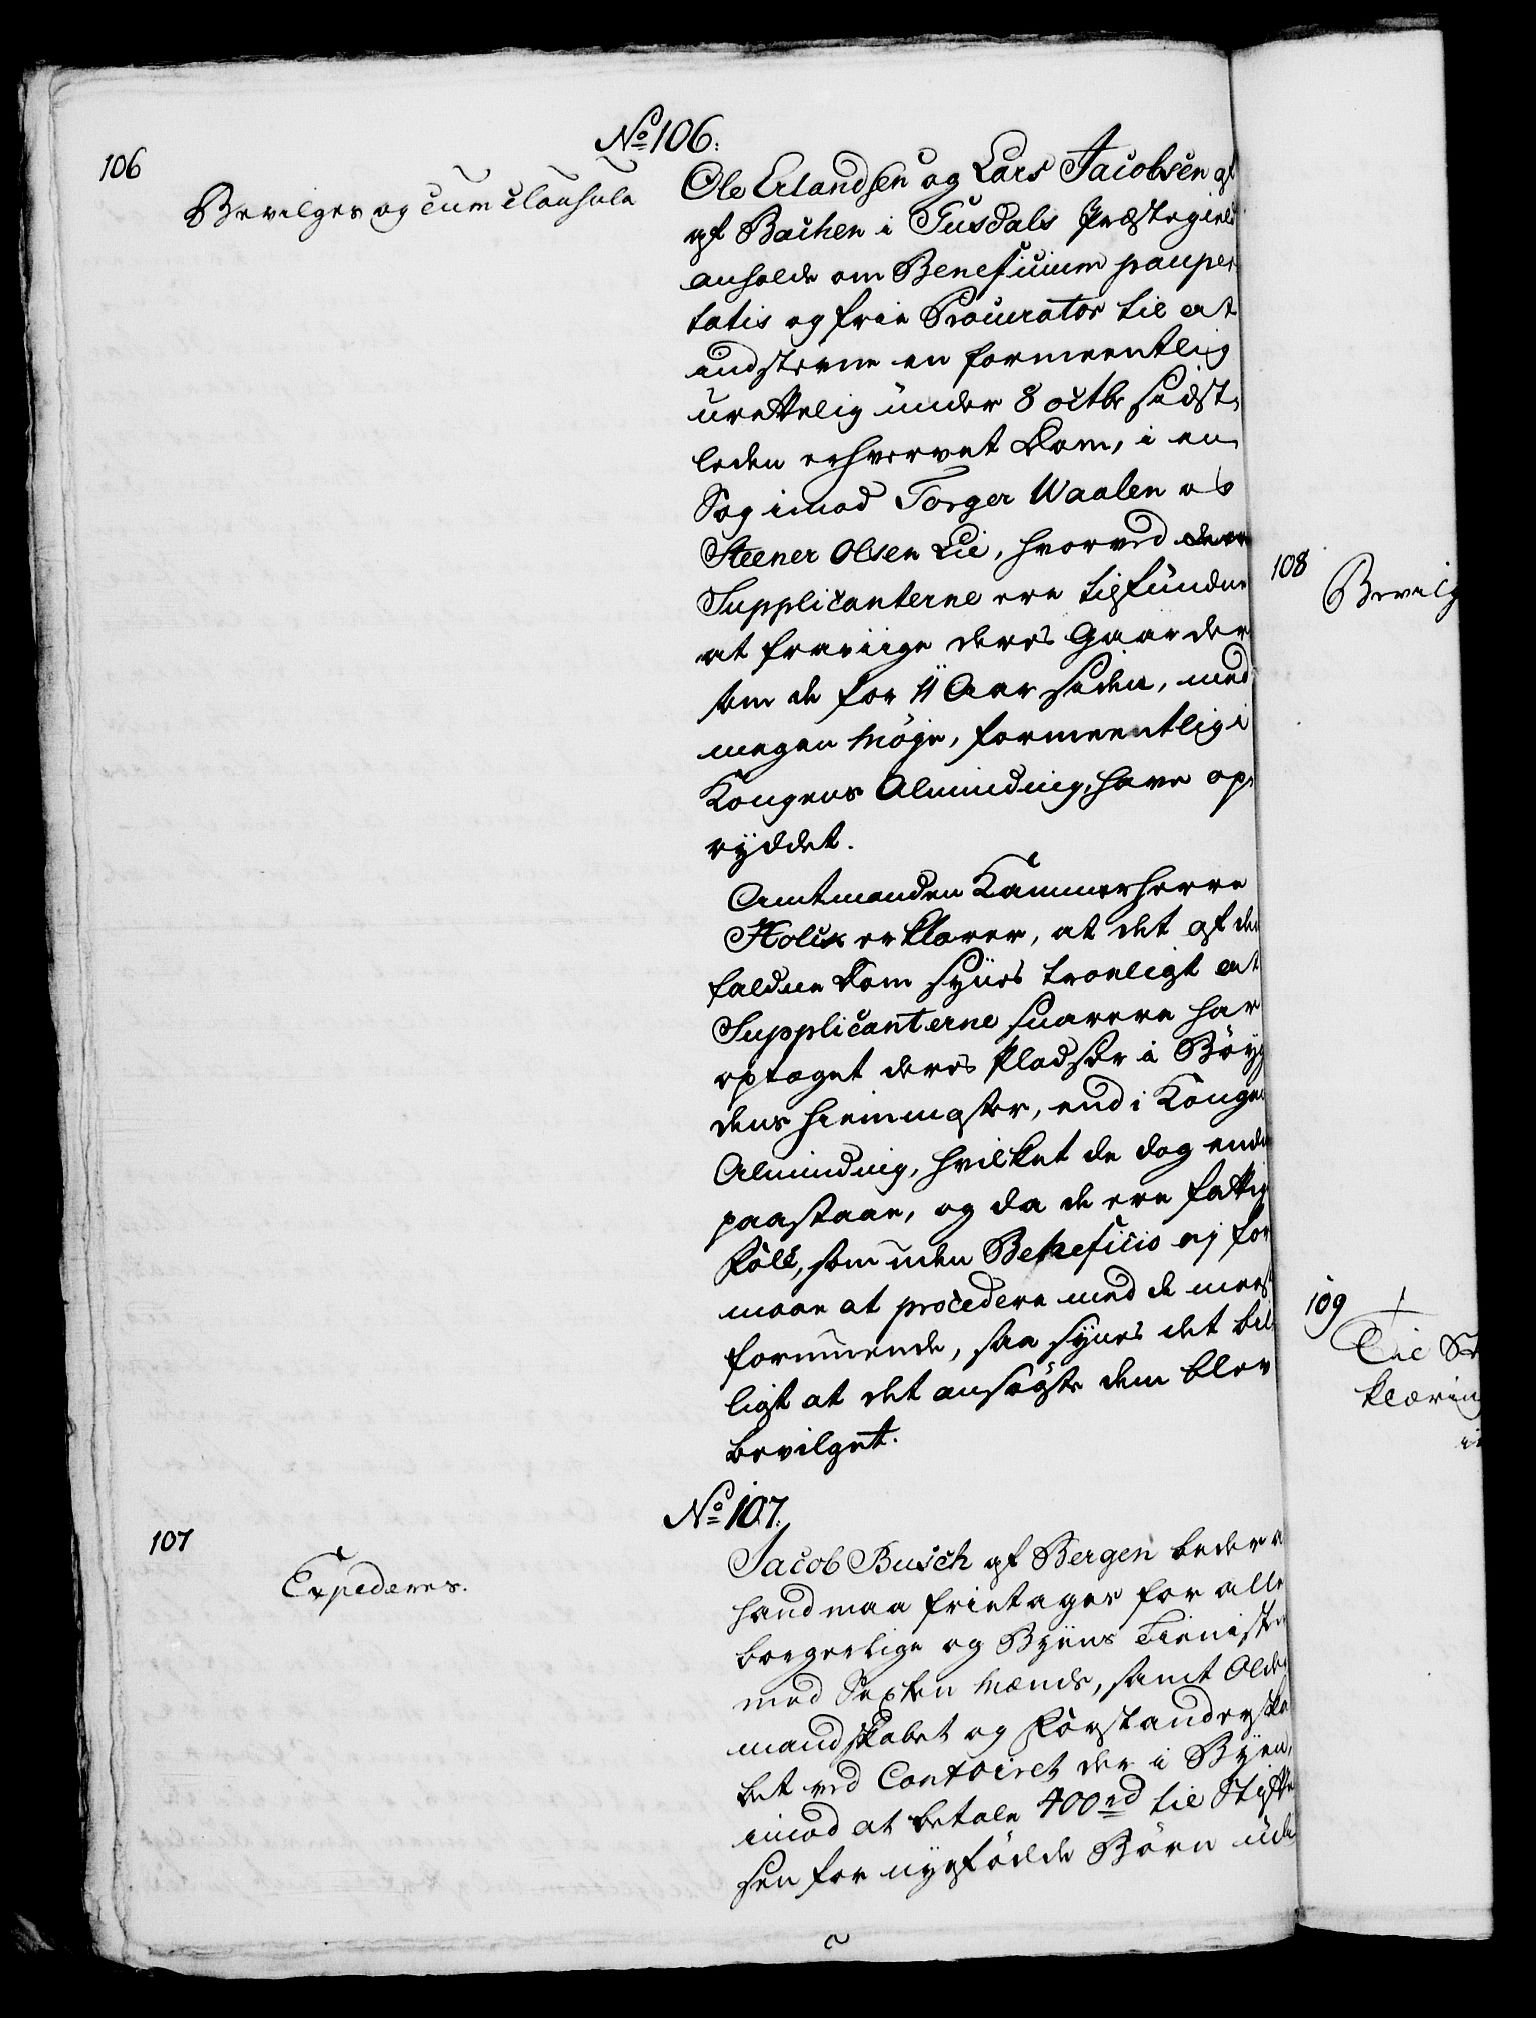 No 106.
106
Bevilges og cum clausula
Ole Erlandsen og Lars Jacobsen af
af Bachen i Tusdals Præstegield
anholde om Beneficium pauper
tatis og frie Procurator til at
indstevne en formeentlig
urettelig under 8 octbr sidst
leden erhvervet Dom, i en
Sag imod Torger Waalen og
Steener Olsen Lie, hvorved
Supplicanterne ere tilfundne
at fraviige deres Gaarder
som de for 11 Aar siden, med
megen Møje, formeentlig i
Kongens Alminding, have op
ryddet.
Amtmanden Kammerherre
Holck erklærer, at det af den
faldne Dom synes troeligt at
Supplicanterne snarere har
optaget deres Pladser i Bøyg
dens Hiemmaster, end i Kongens
Alminding, hvilket de dog endnu
paastaae, og da de ere fattig
Folk, som uden Beneficio ej for
maae at procedere med de meer
formuende, saa synes det bil
ligt at det ansøgte dem blev
bevilget.
No 107.
107
Expederes.
Jacob Busch af Bergen beder a
hand maa frietages for alle
borgerlige og Byens Tieniste
med Sexten Mænds, samt Older
mandskabet og Forstanderska
bet ved Contoiret der i Byen,
imod at betale 400 rd til Stiftel
sen for nyefødde Børn ude
108
Bevilg
109
Til Er
klæring